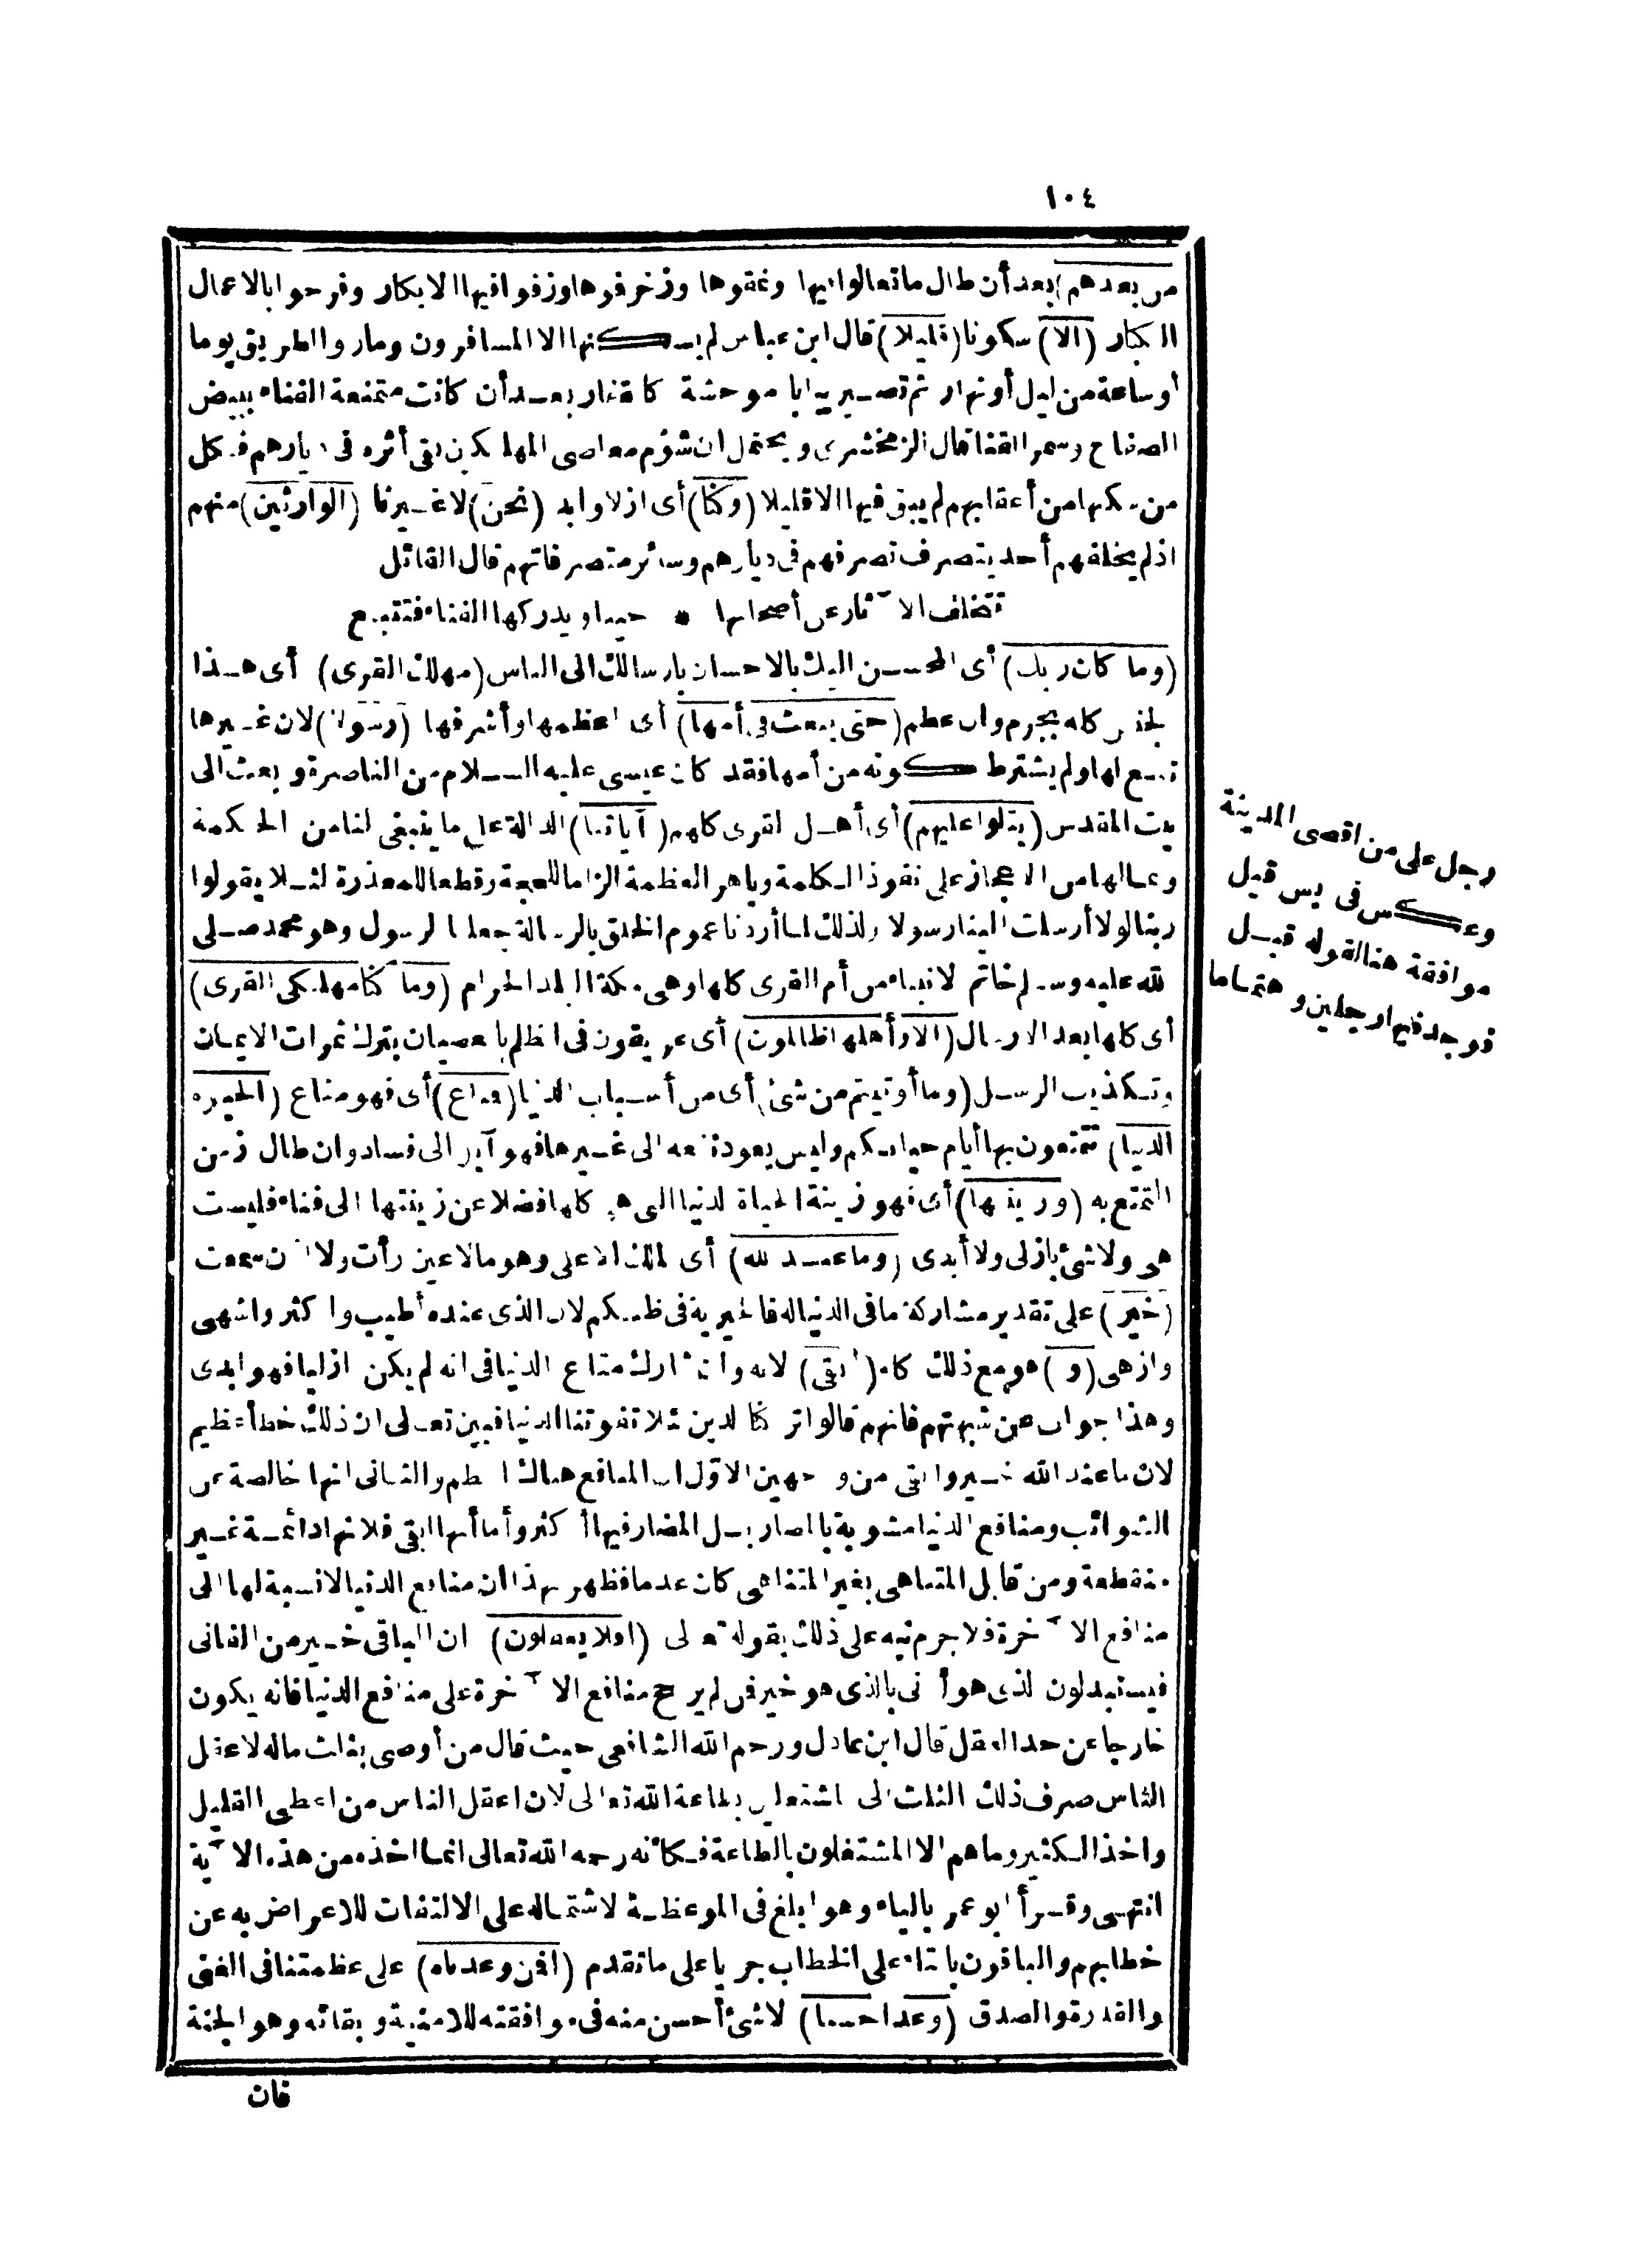 ١٠٤
من بعدهم) بعد أن طال ما تعالوا فيها ونمقوها وزخرفوها وزفوا فيها الابكار وفرحوا بالاعمال
الكبار (الا) سكونا (قليلا) قال ابن عباس لم يسكنها الا المسافرون ومار والطريق يوما
أو ساعة من ليل أو نهار ثم تصير يبابا موحشة كالقفار بعد أن كانت متمنعة الفناء ببيض
الصفاح وسمر القنا قال الزمخشري ويحتمل ان شؤم معاصى المهلكين بقى أثره فى ديارهم فكل
من سكنها من أعقابهم لم يبق فيها الا قليلا (وكنا) أى ازلا وابدا (نحن) لا غيرنا (الوارثين) منهم
اذ لم يخلفهم أحد يتصرف تصرفهم فى ديارهم وسائر متصرفاتهم قال القائل
تتخلف الآثار عن أصحابها * حينا ويدركها الفناء فتتبع
(وما كان ربك) أى المحسن اليك بالاحسان بارسالك الى الناس (مهلك القرى) أى هذا
الجنس كله بجرم وان عظم (حتى يبعث فى أمها) أى اعظمها وأشرفها (رسولا) لان غيرها
تبع لها ولم يشترط كونه من أمها فقد كان عيسى عليه السلام من الناصرة وبعث الى
بيت المقدس (يتلوا عليهم) أى أهل القرى كلهم (آياتنا) الدالة على ما ينبغى لنا من الحكمة
وعالها من الاعجاز على نفوذ الكلمة وباهر العظمة الزاما للحجة وقطعا للمعذرة لئلا يقولوا
ربنا لولا أرسلت الينا رسولا ولذلك لما أردنا عموم الخلق بالرسالة جعلنا الرسول وهو محمد صلى
الله عليه وسلم خاتم الانبياء من أم القرى كلها وهى مكة البلد الحرام (وما كنا مهلكى القرى)
أى كلها بعد الارسال (الا وأهلها ظالمون) أى عريقون فى الظلم بالعصيان بترك ثمرات الايمان
وتكذيب الرسل (وما أوتيتم من شئ) أى من أسباب الدنيا (فمتاع) أى فهو متاع (الحيوة
الدنيا) تتمتعون بها أيام حياتكم وليس يعود نفعه الى غيرها فهو آيل الى فساد وان طال زمن
التمتع به (وزينتها) أى فهو زينة الحياة الدنيا التى هى كلها فضلا عن زينتها الى فناء فليست
هى ولا شئ بازلى ولا أبدى (وما عند الله) أى الملك الاعلى وهو مالا عين رأت ولا اذن سمعت
(خير) على تقدير مشاركة ما فى الدنيا له فالخيرية فى ظنكم لان الذى عنده أطيب واكثر واشهى
وازهى (و) هو مع ذلك كله (أبقى) لانه وان شارك متاع الدنيا فى انه لم يكن ازليا فهو ابدى
وهذا جواب عن شبهتهم فانهم قالوا تركنا الدين لئلا تفوتنا الدنيا فبين تعالى ان ذلك خطأ عظيم
لان ما عند الله خير وابقى من وجهين الاول ان المنافع هناك اعظم والثانى انها خالصة عن
الشوائب ومنافع الدنيا مشوبة بالمضار بل المضار فيها أكثر وأما أنها ابقى فلانها دائمة غير
منقطعة ومن قابل المتناهى بغير المتناهى كان عدما فظهر بهذا ان منافع الدنيا لا نسبة لها الى
منافع الآخرة فلا جرم نبه على ذلك بقوله تعالى (افلا يعقلون) ان الباقى خير من الفانى
فيستبدلون الذى هو أدنى بالذى هو خير فمن لم يرجح منافع الآخرة على منافع الدنيا فانه يكون
خارجا عن حد العقل قال ابن عادل ورحم الله الشافعى حيث قال من أوصى بثلث ماله لاعقل
الناس صرف ذلك الثلث الى المشتغلين بطاعة الله تعالى لان اعقل الناس من اعطى القليل
واخذ الكثير وما هم الا المشتغلون بالطاعة فكأنه رحمه الله تعالى انما اخذه من هذه الآية
انتهى وقرأ ابو عمرو بالياء وهو ابلغ فى الموعظة لاشتماله على الالتفات للاعراض به عن
خطابهم والباقون بالتاء على الخطاب جريا على ما تقدم (افمن وعدناه) على عظمتنا فى الغنى
والقدرة والصدق (وعدا حسنا) لا شئ أحسن منه فى موافقته للامنية وبقائه وهو الجنة
فان
رجل على من اقصى المدينة
وعكس فى يس قيل
موافقة هنا لقوله قبل
فوجد فيها رجلين وهتماما